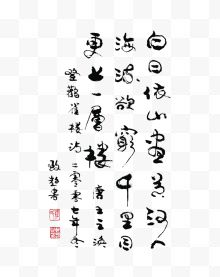 白日依山尽黄河入
海流欲穷千里目
更上一层楼 唐王之涣
登鹳雀楼诗 二零零七年冬